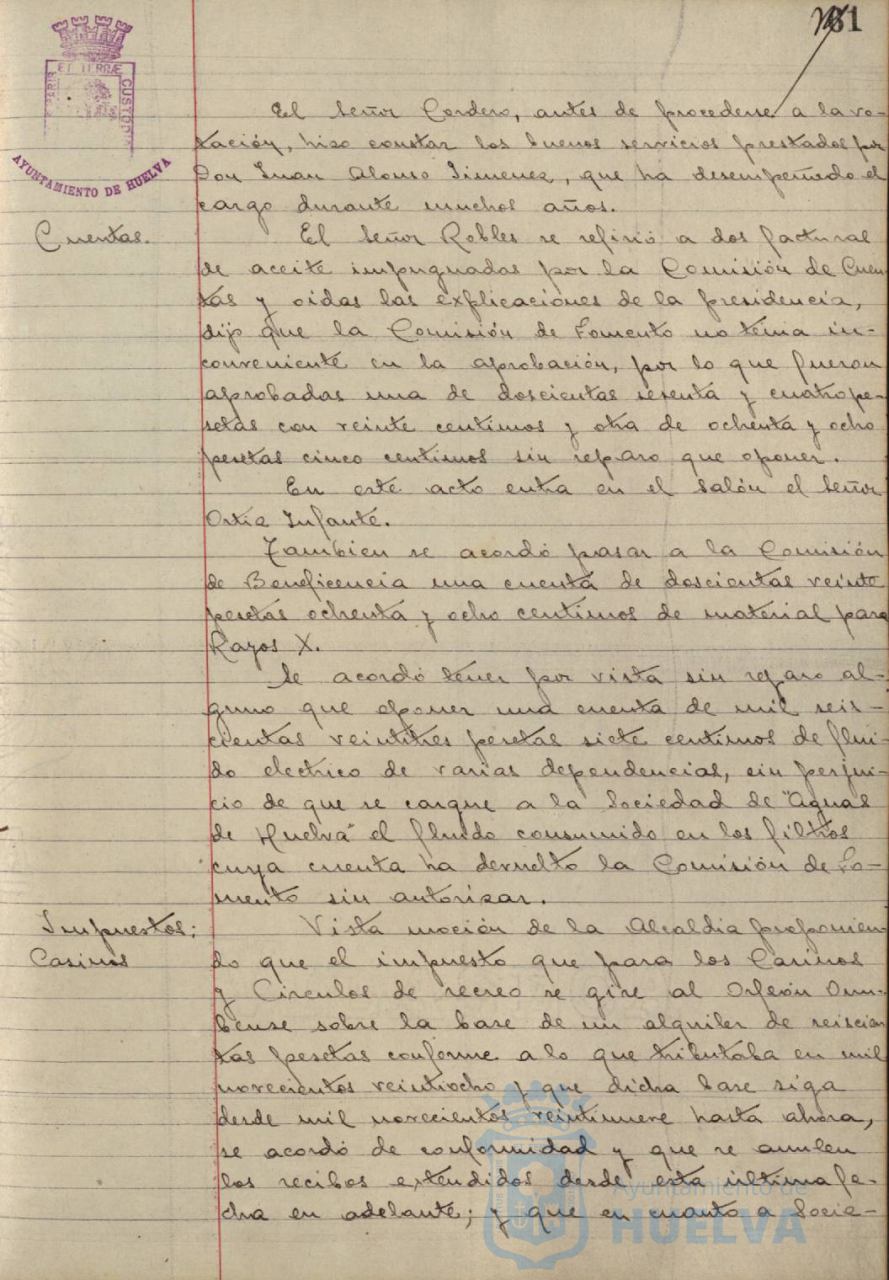 181
ET TERRÆ
CUSTODIA
AYUNTAMIENTO DE HUELVA
El Señor Cordero, antes de procederse a la vo-
tación, hizo constar los buenos servicios prestados por
Don Juan Alonso Jimenez, que ha desempeñado el
cargo durante muchos años.
Cuentas.
El Señor Robles se refirió a dos facturas
de aceite impugnadas por la Comisión de Cuen-
tas y oidas las explicaciones de la presidencia,
dijo que la Comisión de Fomento no tenia in-
conveniente en la aprobación, por lo que fueron
aprobadas una de doscientas sesenta y cuatro pe-
setas con veinte centimos y otra de ochenta y ocho
pesetas cinco centimos sin reparo que oponer.
En este acto entra en el salón el Señor
Ortiz Infante.
Tambien se acordó pasar a la Comisión
de Beneficencia una cuenta de doscientas veinte
pesetas ochenta y ocho centimos de material para
Rayos X.
Se acordó tener por vista sin reparo al-
guno que oponer una cuenta de mil seis-
cientas veintitres pesetas siete centimos de flui-
do electrico de varias dependencias, sin perjui-
cio de que se cargue a la Sociedad de "Aguas
de Huelva" el fluido consumido en los filtros
cuya cuenta ha devuelto la Comisión de Fo-
mento sin autorizar.
Impuestos:
Casinos
Vista moción de la Alcaldia proponien-
do que el impuesto que para los Casinos
y Circulos de recreo se gire al Orfeón Onu-
bense sobre la base de un alquiler de seiscien
tas pesetas conforme a lo que tributaba en mil
novecientos veintiocho y que dicha base siga
desde mil novecientos veintinueve hasta ahora,
se acordó de conformidad y que se anulen
los recibos extendidos desde esta última fe-
cha en adelante; y que en cuanto a Socie-
Ayuntamiento de
HUELVA